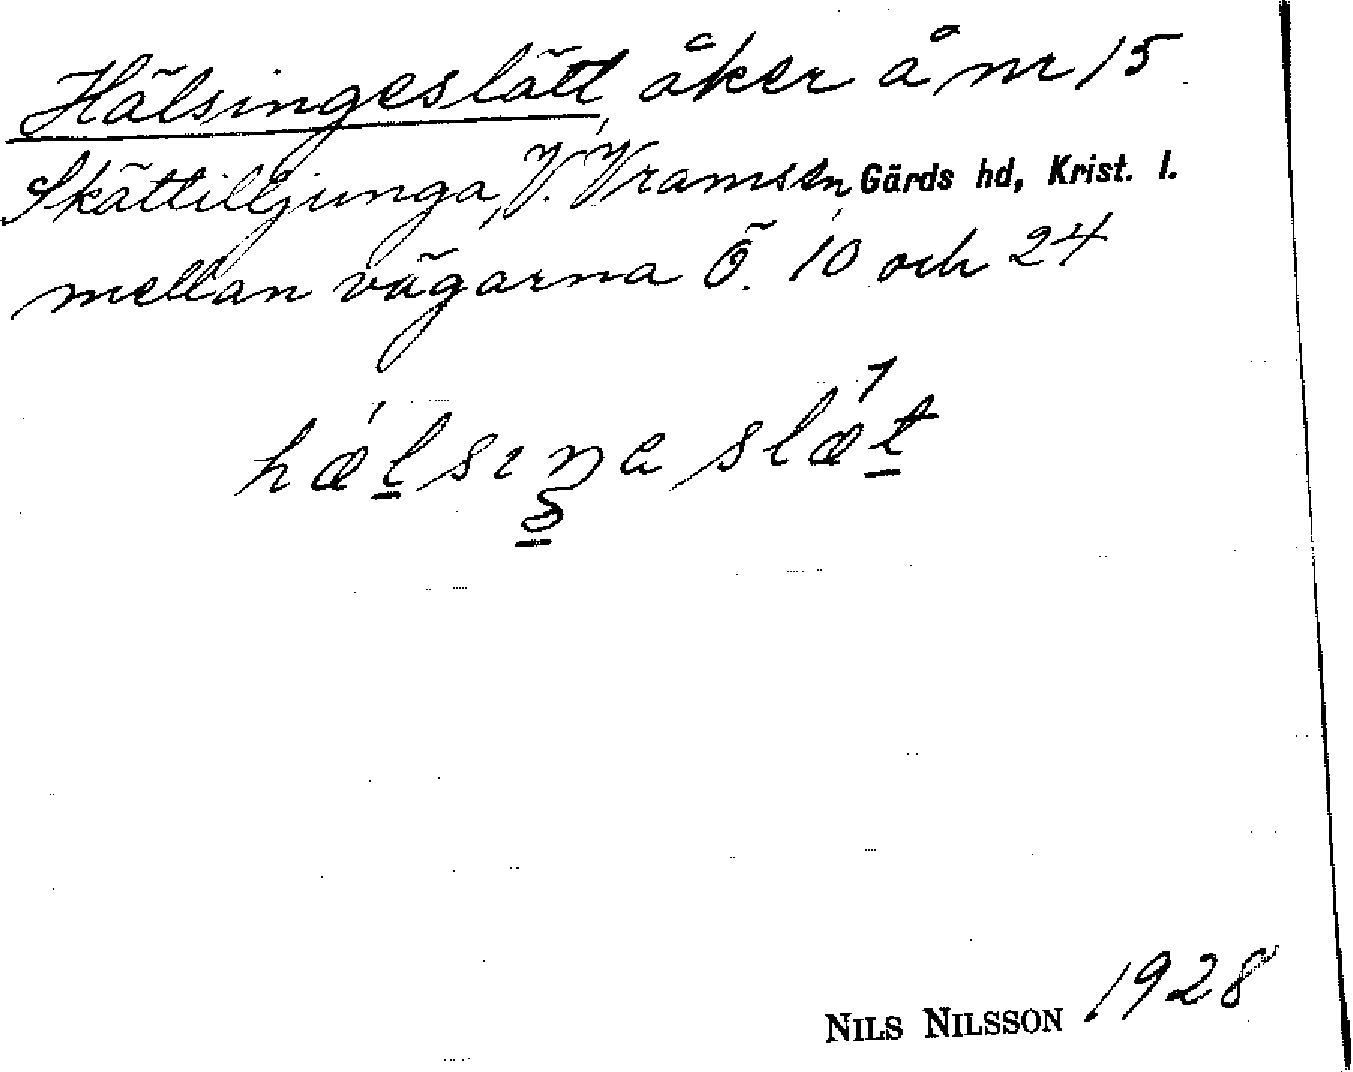 Hälsingeslätt, åker å nr 15
Skättilljunga, V. Vram sn, Gärds hd, Krist. l.
mellan vägarna Ö. 10 och 24
hælsiŋa slæt
NILS NILSSON 1928